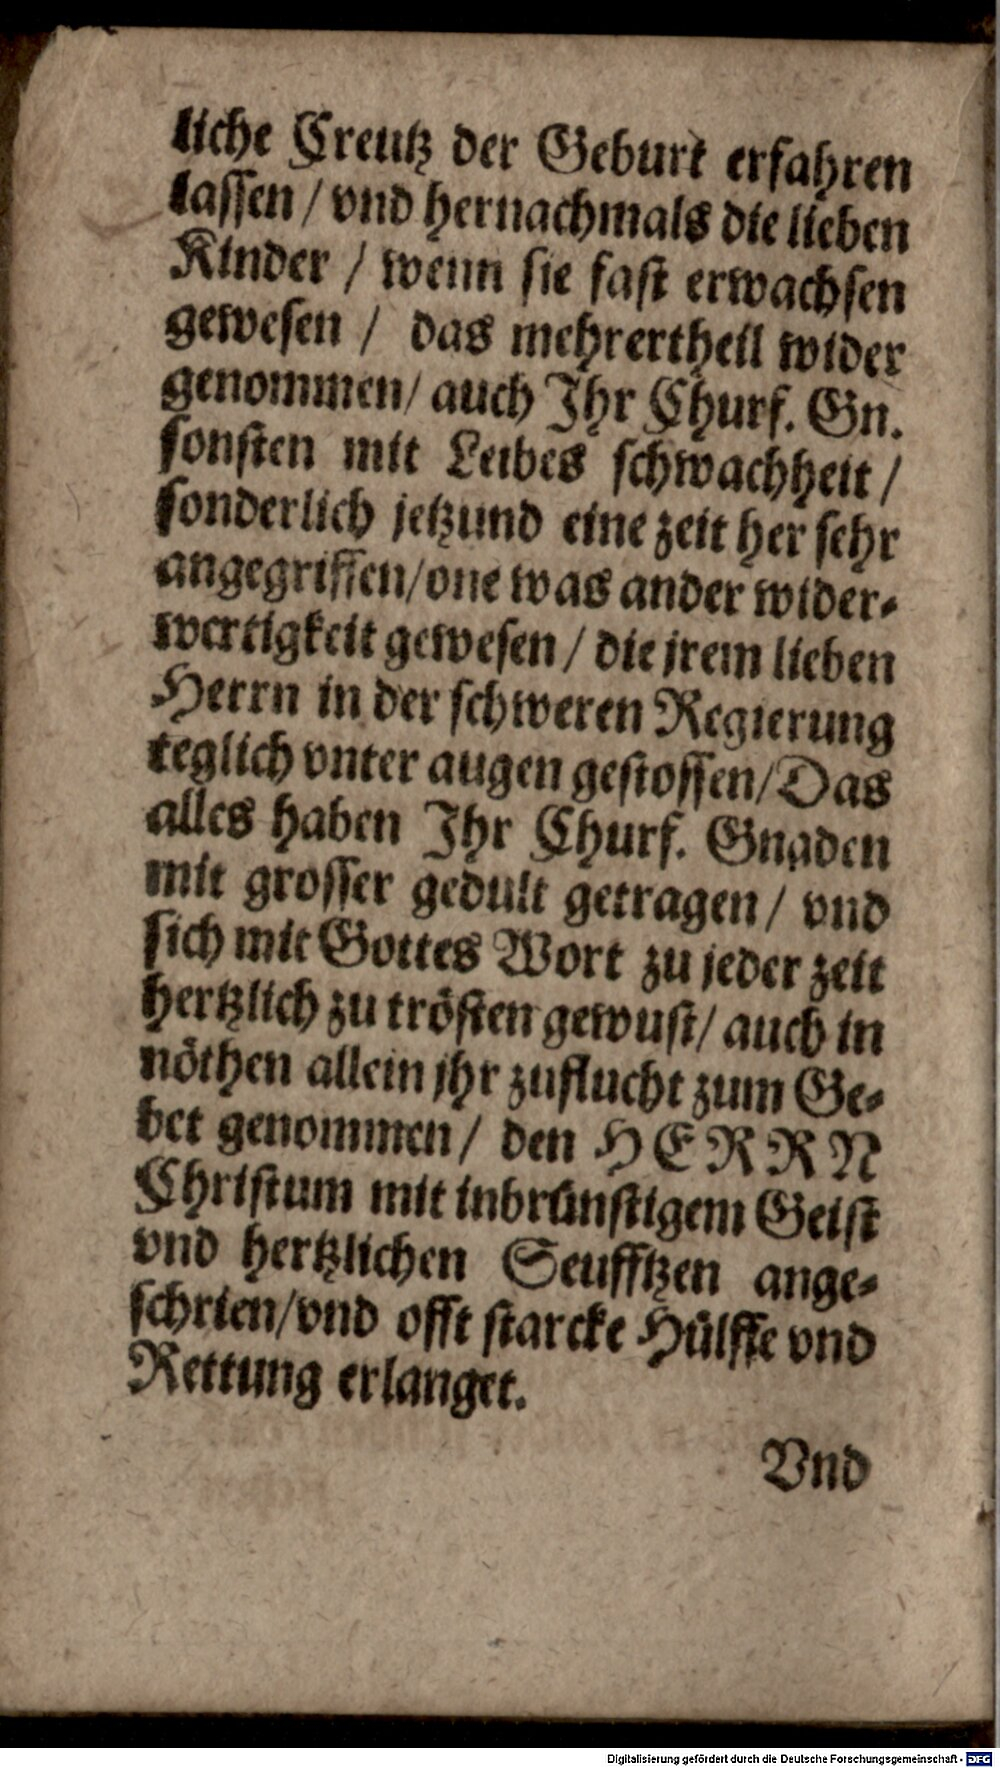 liche Creutz der Geburt erfahren
lassen / vnd hernachmals die lieben
Kinder / wenn sie fast erwachsen
gewesen / das mehrertheil wider
genommen / auch Ihr Churf. Gn.
sonsten mit Leibes schwachheit /
sonderlich jetzund eine zeit her sehr
angegriffen / one was ander wider-
wertigkeit gewesen / die jrem lieben
Herrn in der schweren Regierung
teglich vnter augen gestossen / Das
alles haben Ihr Churf. Gnaden
mit grosser gedult getragen / vnd
sich mit Gottes Wort zu jeder zeit
hertzlich zu trösten gewust / auch in
nöthen allein jhr zuflucht zum Ge-
bet genommen / den HERRN
Christum mit inbrünstigem Geist
vnd hertzlichen Seufftzen ange-
schrien / vnd offt starcke Hülffe vnd
Rettung erlanget.
Vnd
Digitalisierung gefördert durch die Deutsche Forschungsgemeinschaft - DFG